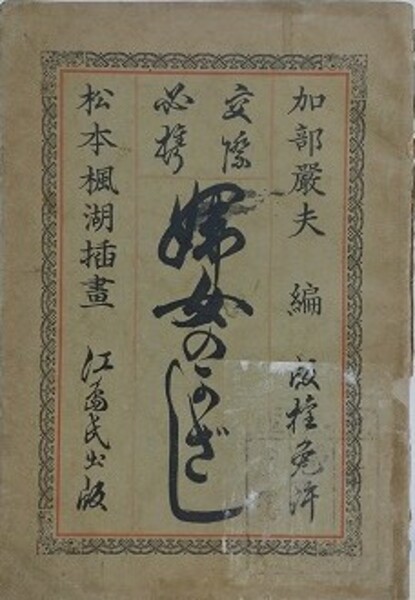 加部嚴夫 編 版権免許
交際
必携
婦女のかざし
松本楓湖插畫 江島氏出版